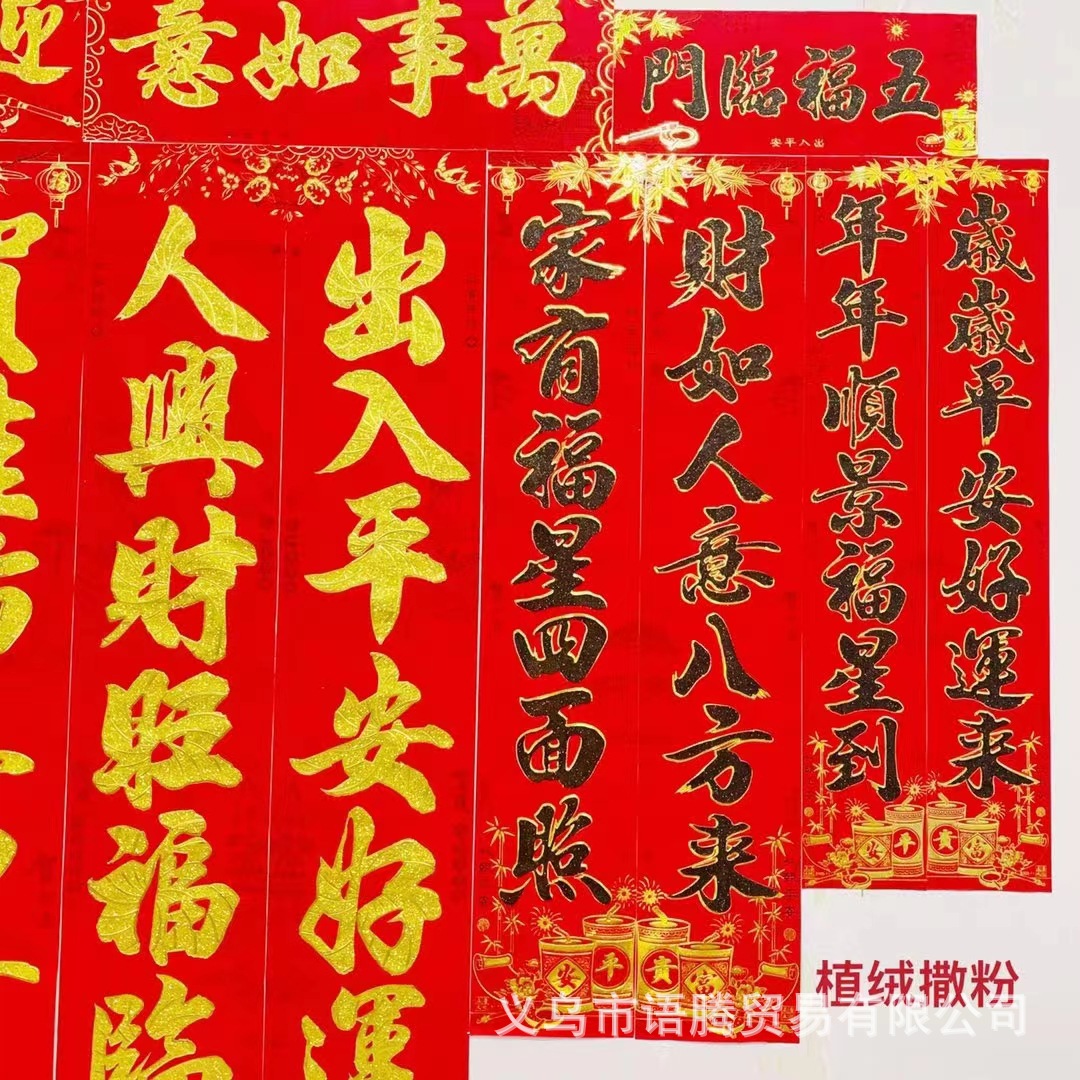 萬事如意
五福臨門
出入平安
歲歲平安好運来
年年順景福星到
財如人意八方来
家有福星四面照
出入平安好運
人興財旺福臨
富貴平安
富貴平安
植绒撒粉
义乌市语腾贸易有限公司